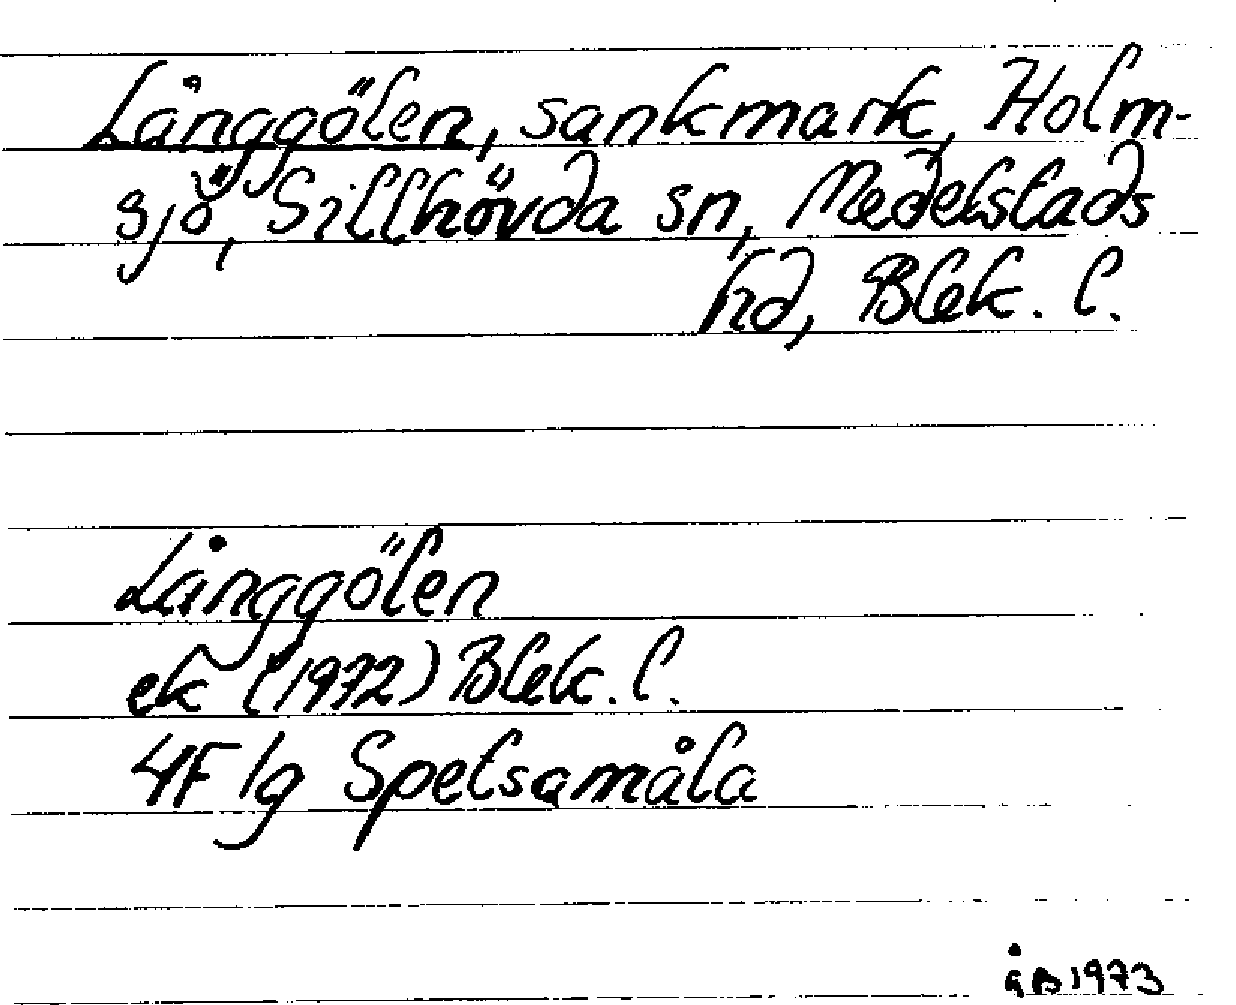 Långgölen, sankmark, Holm-
sjö, Sillhövda sn, Medelstads
hd, Blek. l.
Långgölen
ek (1972) Blek. l.
4F 1g Spetsamåla
åB 1973